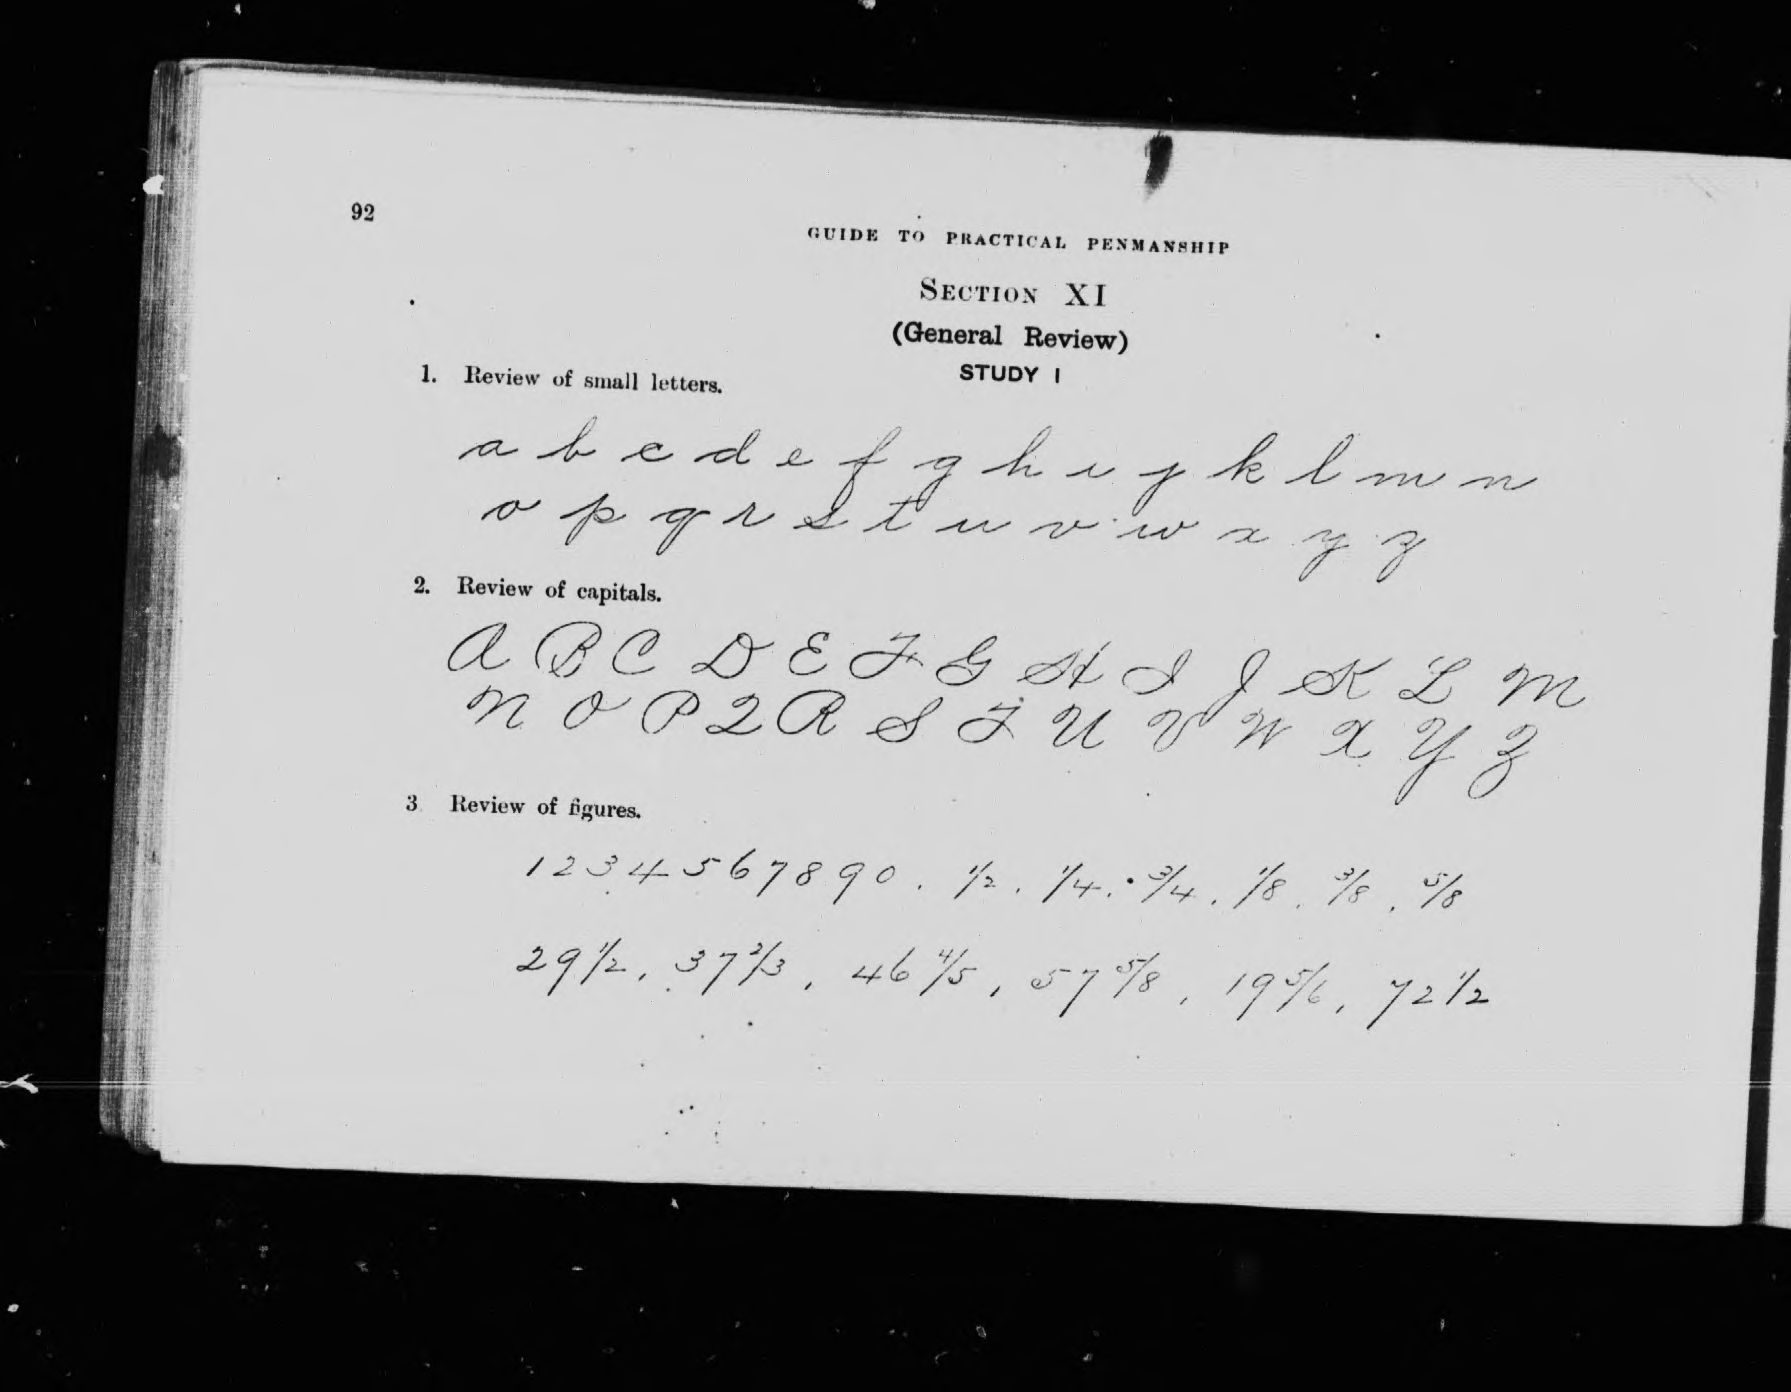 92
GUIDE TO PRACTICAL PENMANSHIP
SECTION XI
(General Review)
STUDY I
1. Review of small letters.
a b c d e f g h i j k l m n
o p q r s t u v w x y z
2. Review of capitals.
A B C D E F G H I J K L M
N O P Q R S T U V W X Y Z
3 Review of figures.
1 2 3 4 5 6 7 8 9 0 , 1/2 , 1/4 , 3/4 , 1/8 , 3/8 , 5/8
29 1/2 , 37 2/3 , 46 4/5 , 57 5/8 , 19 5/6 , 72 1/2